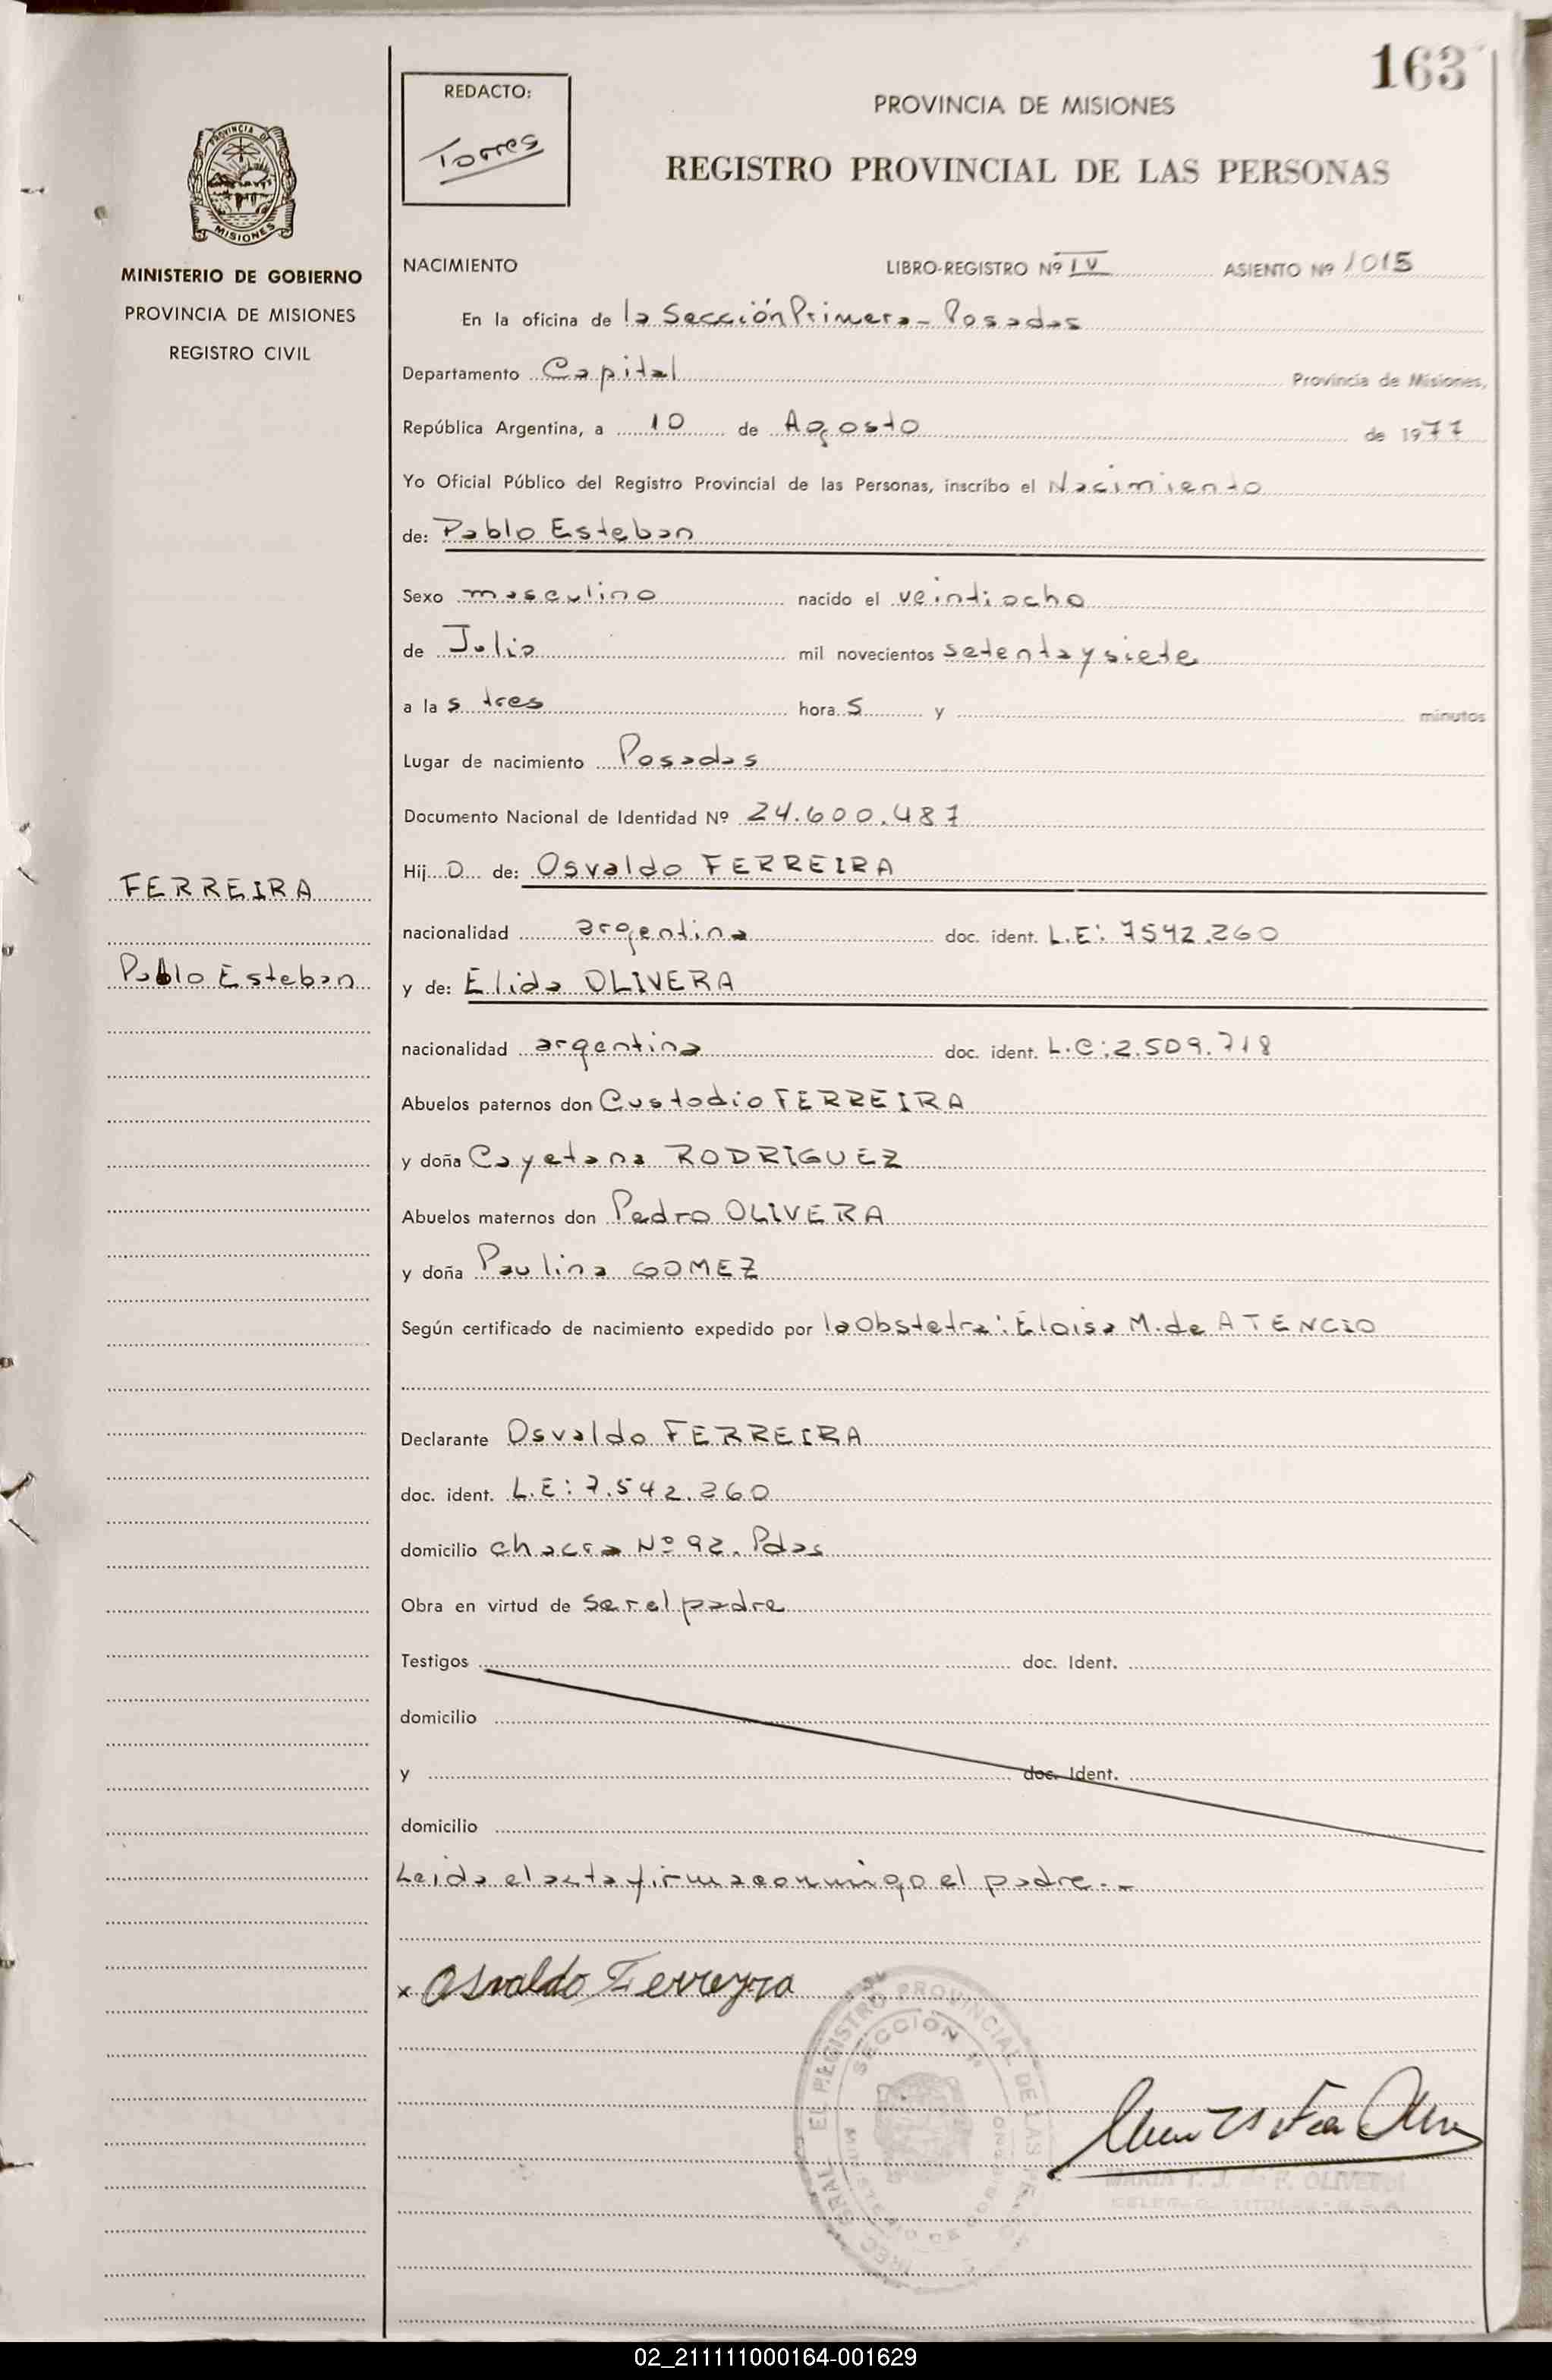 163
REDACTO:
Torres
PROVINCIA DE MISIONES
REGISTRO PROVINCIAL DE LAS PERSONAS
PROVINCIA DE
MISIONES
MINISTERIO DE GOBIERNO
PROVINCIA DE MISIONES
REGISTRO CIVIL
NACIMIENTO LIBRO-REGISTRO Nº IV ASIENTO Nº 1015
En la oficina de la Sección Primera - Posadas
Departamento Capital Provincia de Misiones,
República Argentina, a 10 de Agosto de 1977
Yo Oficial Público del Registro Provincial de las Personas, inscribo el Nacimiento
de: Pablo Esteban
Sexo masculino nacido el veintiocho
de Julio mil novecientos setenta y siete
a las tres horas y minutos
Lugar de nacimiento Posadas
Documento Nacional de Identidad Nº 24.600.487
Hijo de: Osvaldo FERREIRA
FERREIRA
nacionalidad argentina doc. ident. L.E: 7542.260
Pablo Esteban
y de: Elida OLIVERA
nacionalidad argentina doc. ident. L.C: 2.509.718
Abuelos paternos don Custodio FERREIRA
y doña Cayetana RODRIGUEZ
Abuelos maternos don Pedro OLIVERA
y doña Paulina GOMEZ
Según certificado de nacimiento expedido por la Obstetra: Eloisa M. de ATENCIO
Declarante Osvaldo FERREIRA
doc. ident. L.E: 7.542.260
domicilio chacra Nº 92. Pdas
Obra en virtud de ser el padre
Testigos doc. Ident.
domicilio
y doc. Ident.
domicilio
Leida el acta firma conmigo el padre.-
x Osvaldo Ferreyra
REGISTRO PROVINCIAL DE LAS
SECCION
MINISTERIO DE GOBIERNO
MARIA T. J. F. OLIVE
02_211111000164-001629